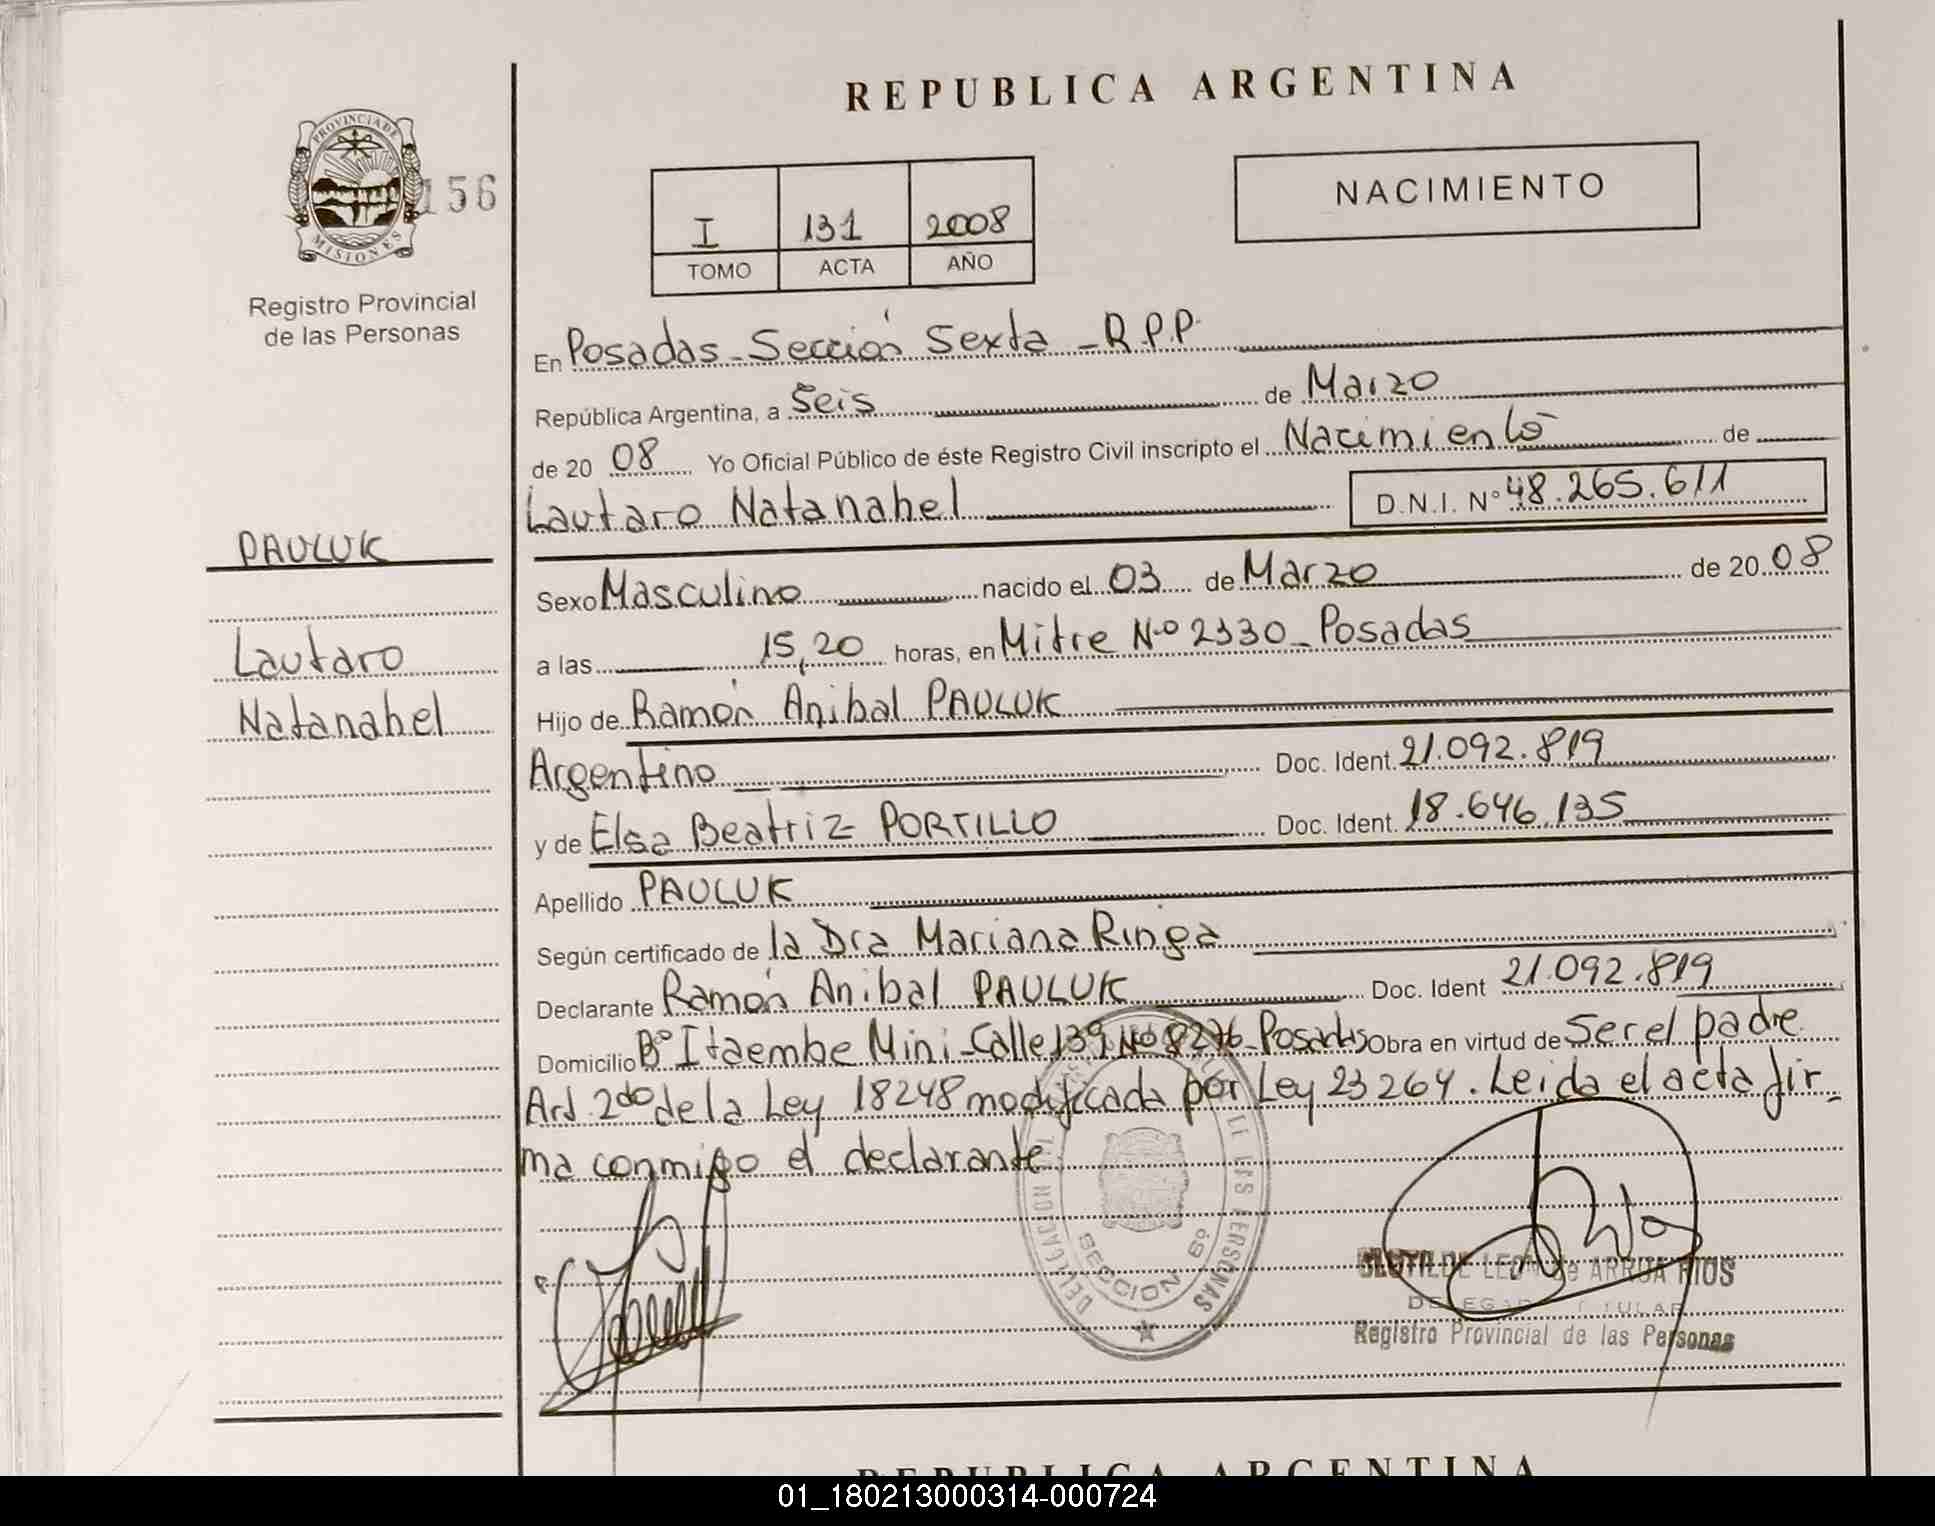 REPUBLICA ARGENTINA
PROVINCIA DE
MISIONES
156
Registro Provincial
de las Personas
I 131 2008
TOMO ACTA AÑO
NACIMIENTO
En Posadas - Sección Sexta - R.P.P.
República Argentina, a Seis de Marzo
de 20 08 Yo Oficial Público de éste Registro Civil inscripto el Nacimiento de
Lautaro Natanahel D.N.I. Nº 48.265.611
PAULUK
Lautaro
Natanahel
Sexo Masculino nacido el 03 de Marzo de 20 08
a las 15,20 horas, en Mitre Nº 2330 - Posadas
Hijo de Ramón Anibal PAULUK
Argentino Doc. Ident. 21.092.819
y de Elsa Beatriz PORTILLO Doc. Ident. 18.646.135
Apellido PAULUK
Según certificado de la Dra Mariana Ringa
Declarante Ramón Anibal PAULUK Doc. Ident 21.092.819
Domicilio Bº Itaembe Mini - Calle 139 Nº 8276 - Posadas Obra en virtud de Ser el padre
Art 2do de la Ley 18248 modificada por Ley 23264. Leida el acta fir_
ma conmigo el declarante
DELEGACION
DE LAS PERSONAS
SECCION 6º
CLOTILDE LEON de ARRUA RIOS
DELEGADA TITULAR
Registro Provincial de las Personas
REPUBLICA ARGENTINA
01_180213000314-000724